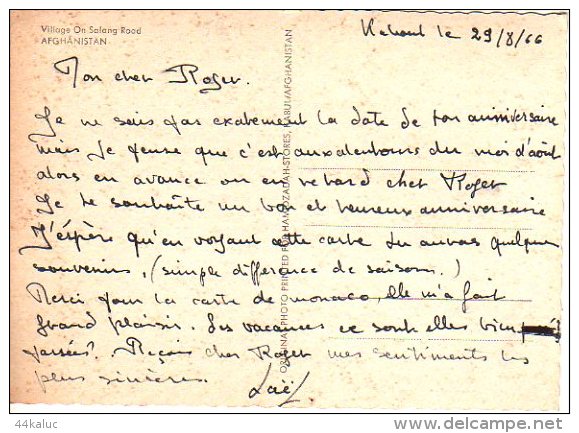 Village On Salang Road
AFGHANISTAN
Kaboul le 29/8/66
Mon cher Roger.
Je ne sais pas exactement la date de ton anniversaire
mais je pense que c'est aux alentours du moi d'août
alors en avance ou en retard cher Roger
Je te souhaite un bon et heureux anniversaire
J'éspère qu'en voyant cette carte tu auras quelques
souvenirs, (simple difference de saison.)
Merci pour la carte de monaco, elle m'a fait
grand plaisir. Les vacances ce sont elles bien
passées? Reçois cher Roger mes sentiments les
plus sincères.
Laël
ORIGINAL PHOTO PRINTED FOR HAMIDZADAH-STORES, KABUL/AFGHANISTAN
44kaluc
www.delcampe.net